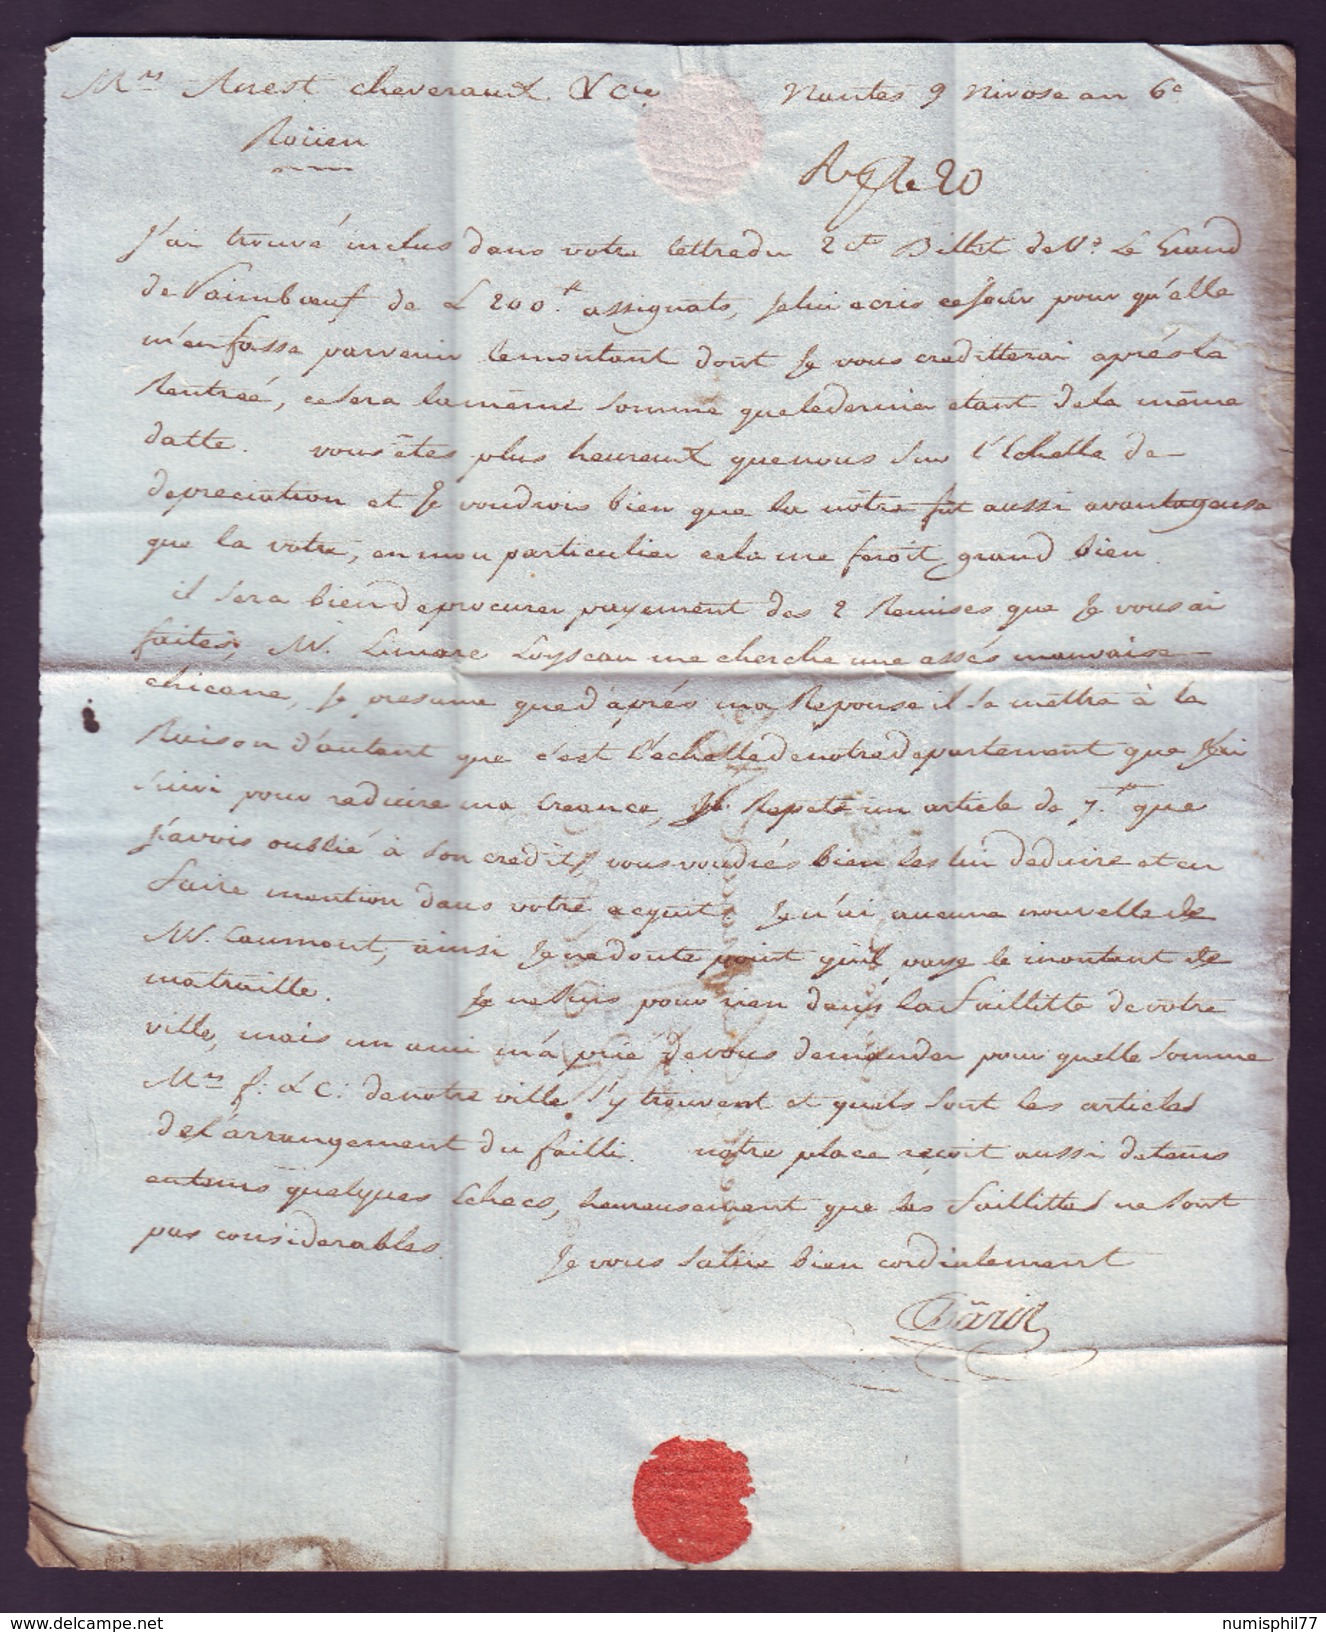 Mrs Anest Cheveraux & Cie Nantes 9 Nivose an 6e
Roüen
le 20
J'ai trouvé inclus dans votre lettre du 2 Ct Billet de Ve Le Grand
de Paimbœuf de L 200.tt assignats, je lui ecris ce Jour pour qu'elle
m'en fasse parvenir le montant dont Je vous creditterai après la
Rentreé, ce sera la même somme que le dernier etant de la même
datte. vous êtes plus heureux que nous sur l'Echelle de
depreciation et Je voudrois bien que la nôtre fut aussi avantageuse
que la votre, en mon particulier cela me feroit grand bien
il sera bien de procurer payement des 2 Remises que Je vous ai
faites, M. Limare Loyseau me cherche une assés mauvaise
chicane, Je presume que d'après ma Reponse il se mettra à la
Raison d'autant que c'est l'echelle de notre departement que J'ai
suivi pour reduire ma Creance, Il Repete un article de 7.tt que
J'avois oublié à son credit, vous voudrés bien les lui deduire et en
faire mention dans votre acquit. Je n'ai aucune nouvelle de
M. Caumont, ainsi Je ne doute point qu'il paye le montant de
ma traitte. Je ne suis pour rien dans la faillitte de votre
ville, mais un ami m'a prié de vous demander pour quelle somme
Mrs f: & C: de notre ville s'y trouvent et quels sont les articles
de l'arrangement du failli. notre place reçoit aussi de tems
en tems quelques Echecs, heureusement que les faillittes ne sont
pas considerables.
Je vous salue bien cordialement
numisphil77
delcampe.net